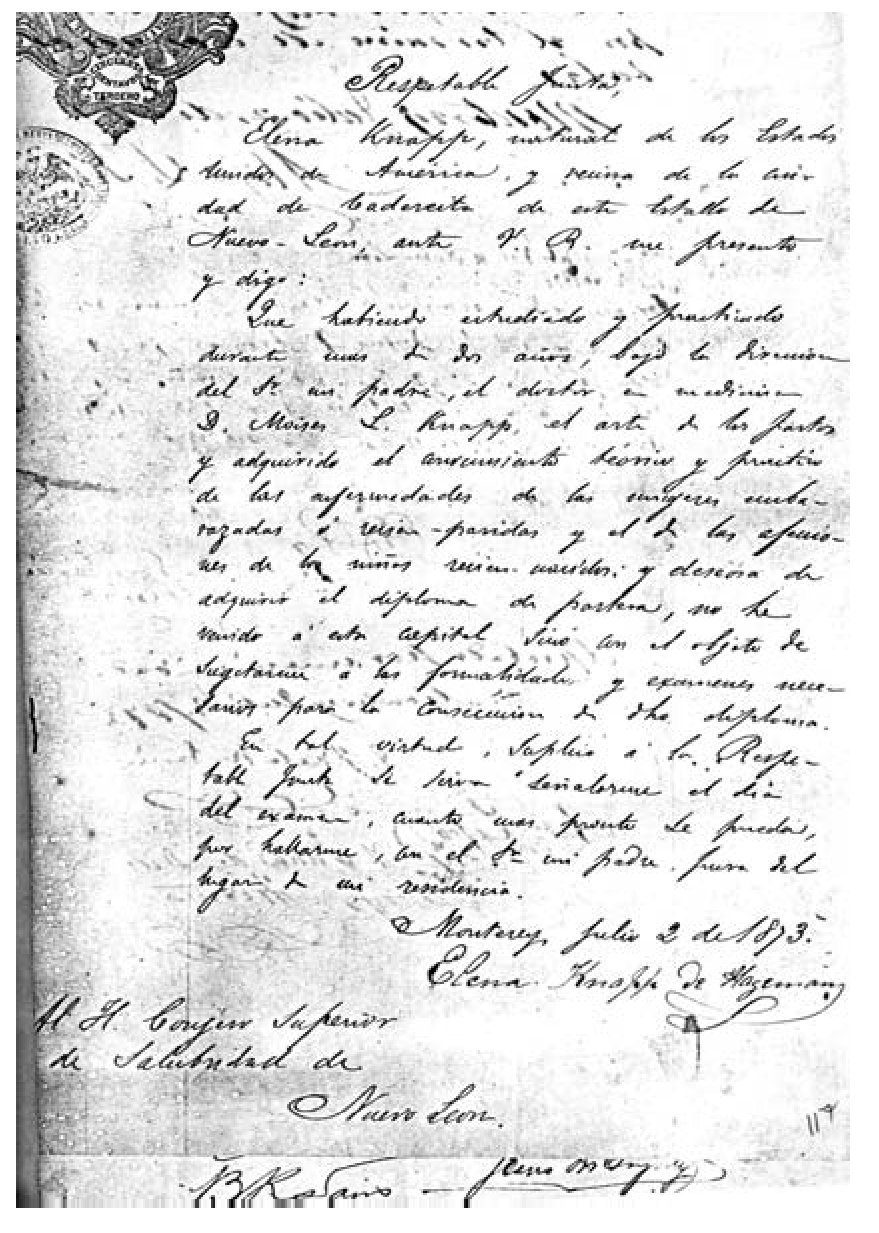 TERCERO
Respetable Junta,
Elena Knapp, natural de los Estados
Unidos de América, y vecina de la ciu-
dad de Cadereita de este Estado de
Nuevo-Leon, ante V. R. me presento
y digo:
Que habiendo estudiado y practicado
durante mas de dos años, bajo la direccion
del Sr. mi padre, el doctor en medicina
D. Moises L. Knapp, el arte de los partos
y adquirido el conocimiento teórico y práctico
de las enfermedades de las mugeres emba-
razadas ó recien-paridas y el de las afeccio-
nes de los niños recien-nacidos; y deseosa de
adquirir el diploma de partera, no he
venido á esta capital sino con el objeto de
sugetarme á las formalidades y examenes nece-
sarios para la consecucion de dho diploma.
En tal virtud, suplico á la Respe-
table Junta se sirva señalarme el dia
del examen, cuanto mas pronto se pueda,
por hallarme, con el Sr. mi padre, fuera del
lugar de mi residencia.
Monterey, Julio 2 de 1873.
Elena Knapp de Hageman
Al H. Consejo Superior
de Salubridad de
Nuevo Leon.